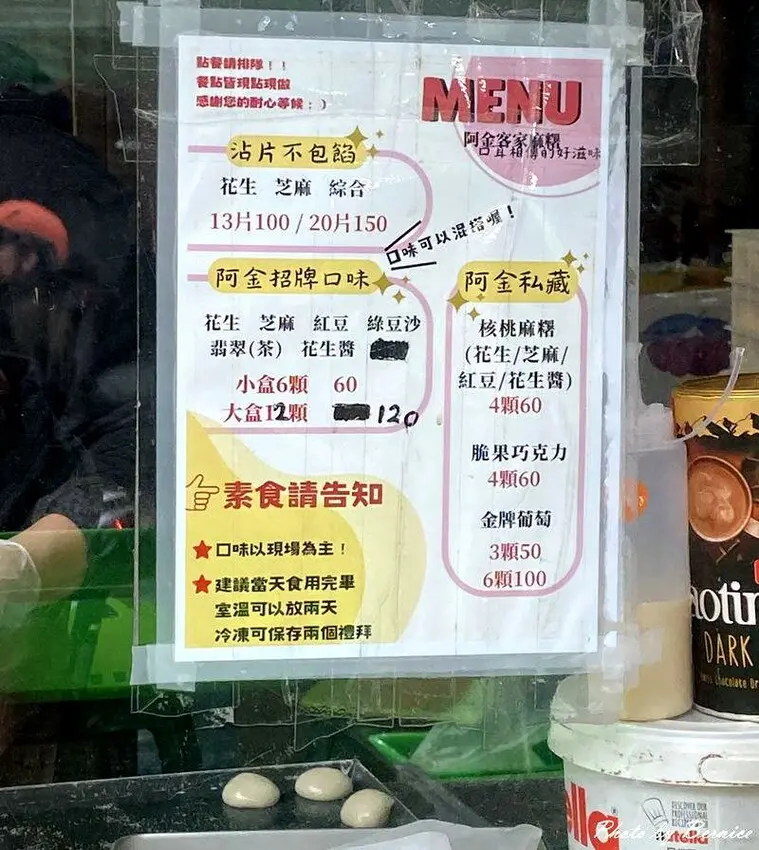 點餐請排隊！！
餐點皆現點現做
感謝您的耐心等候：）
MENU
阿金客家麻糬
口耳相傳的好滋味
沾片不包餡
花生 芝麻 綜合
13片100 / 20片150
口味可以混搭喔！
阿金招牌口味
花生 芝麻 紅豆 綠豆沙
翡翠(茶) 花生醬
小盒6顆 60
大盒12顆 120
阿金私藏
核桃麻糬
(花生/芝麻/
紅豆/花生醬)
4顆60
脆果巧克力
4顆60
金牌葡萄
3顆50
6顆100
素食請告知
★口味以現場為主！
★建議當天食用完畢
室溫可以放兩天
冷凍可保存兩個禮拜
DARK
DISCOVER OUR
PROFESSIONAL
nutella
Photo by Bernice